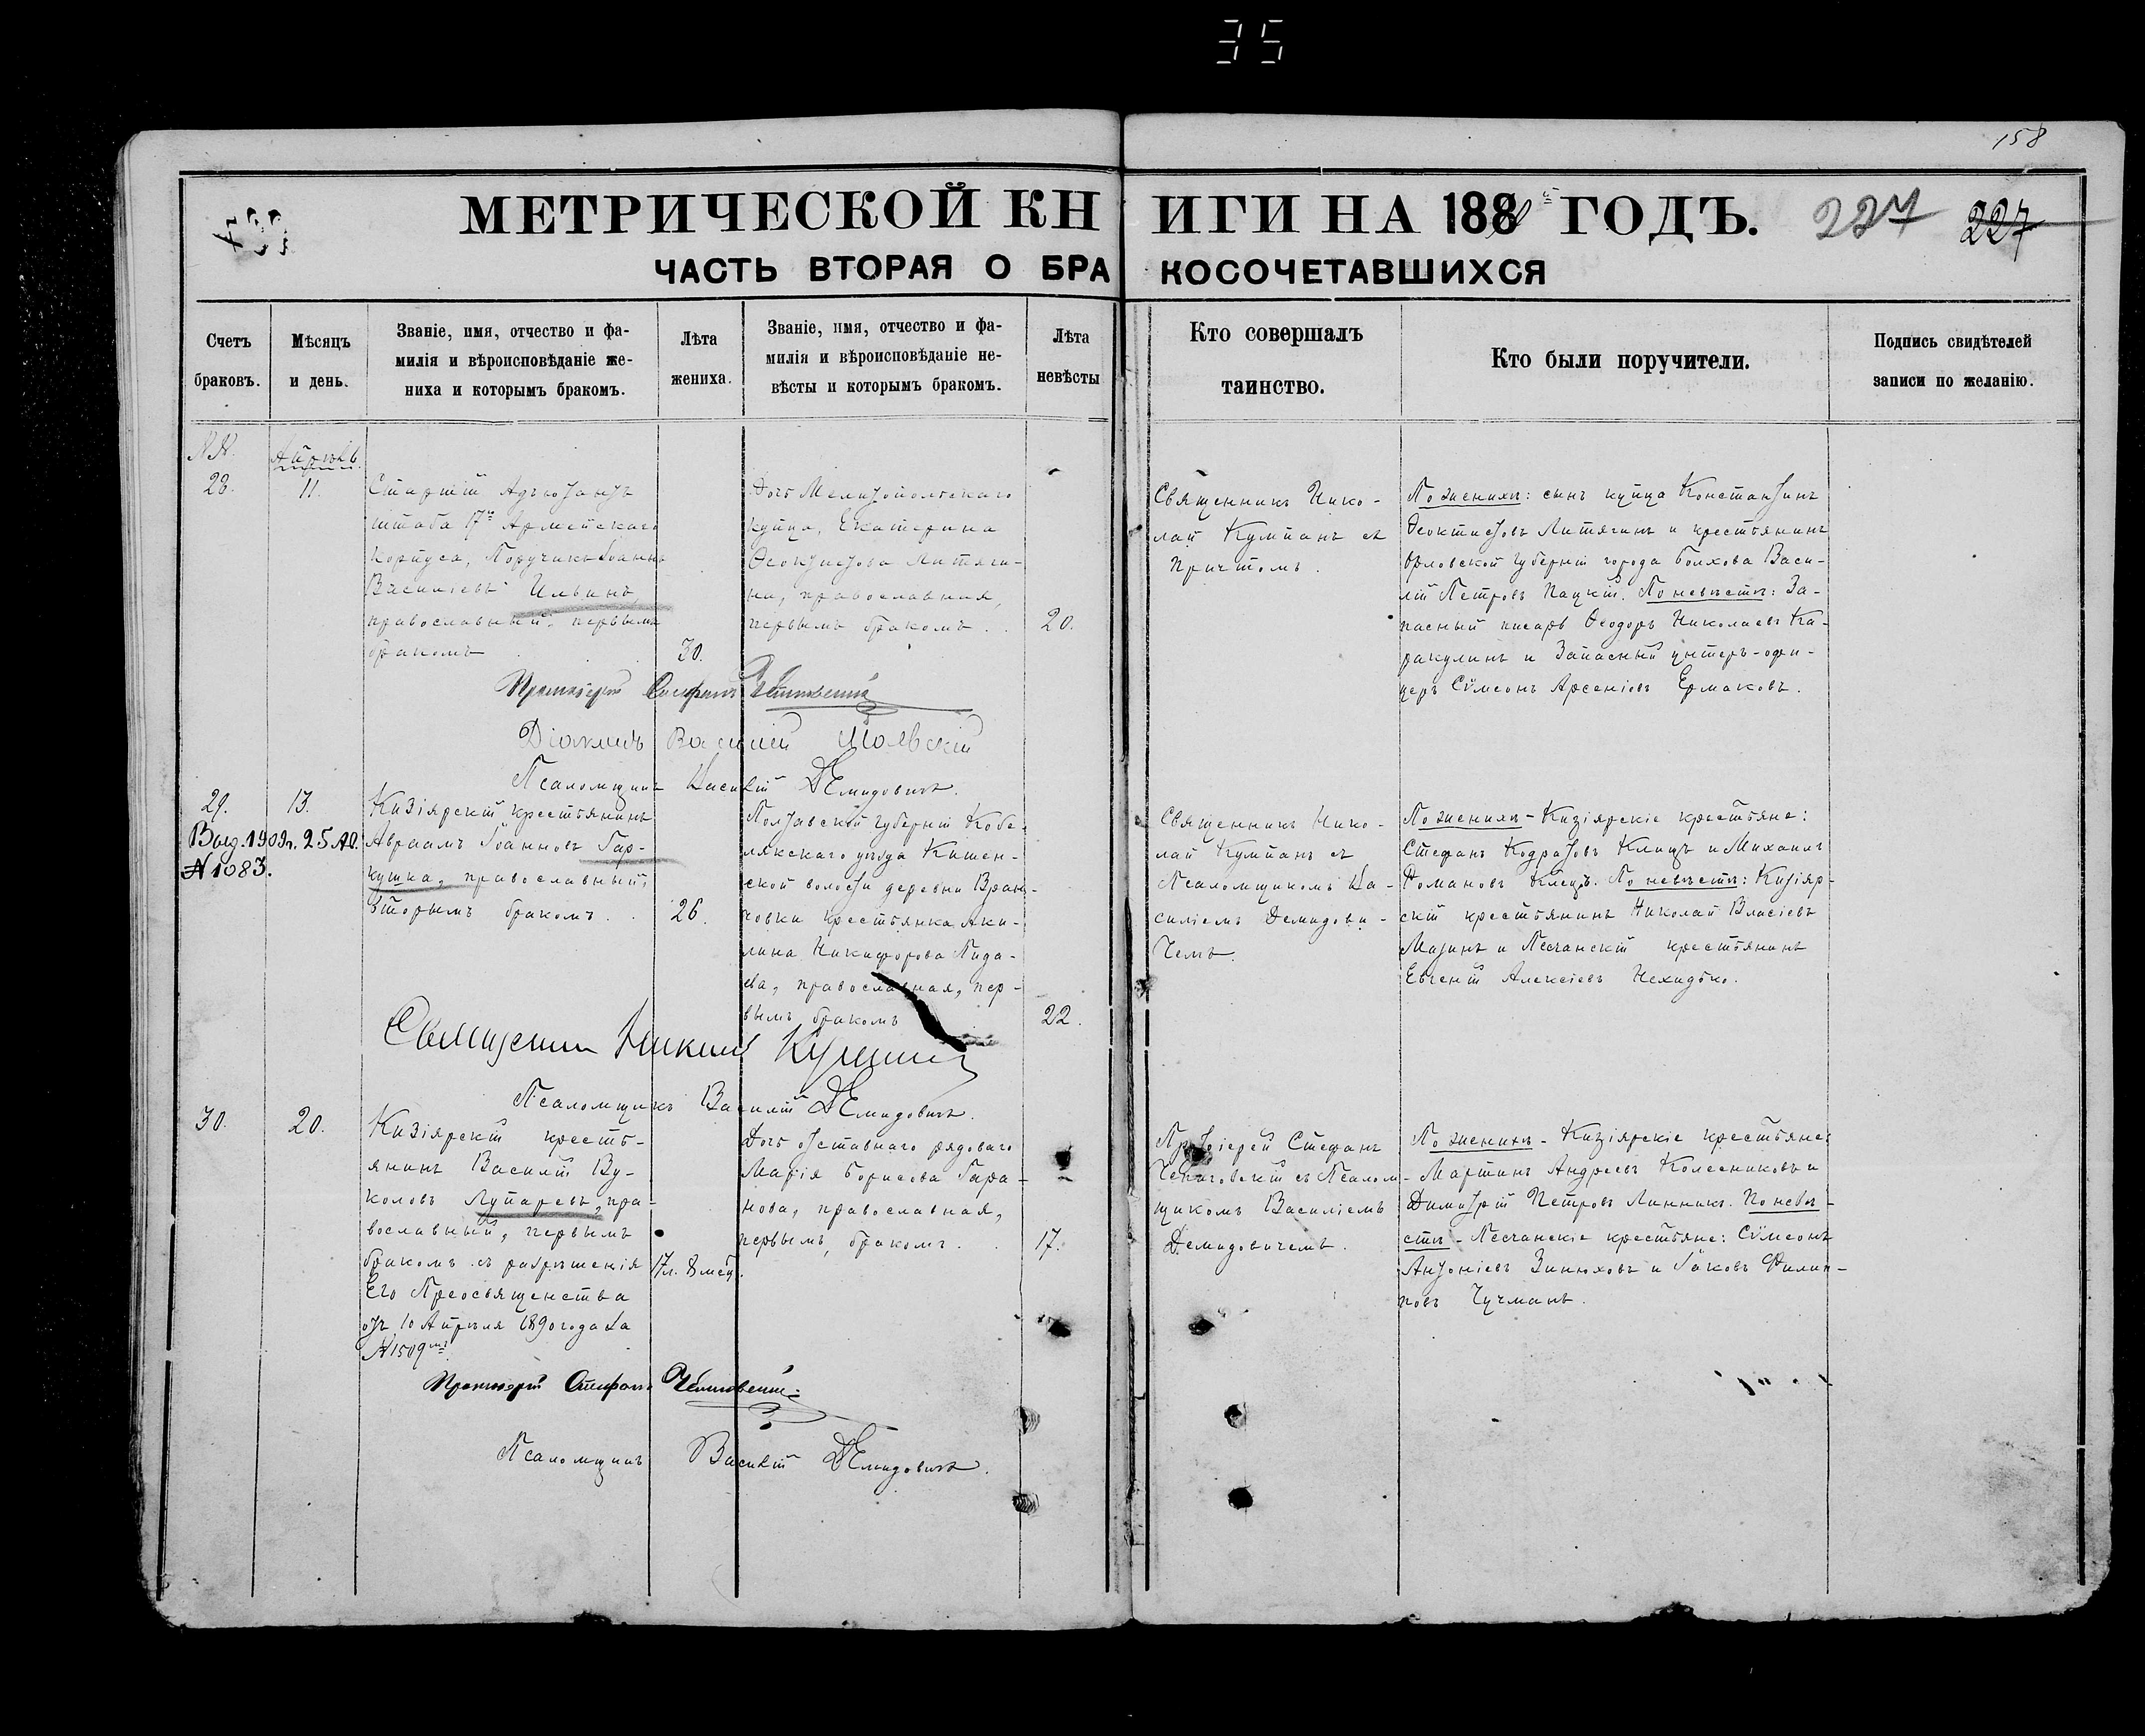 35
158
МЕТРИЧЕСКОЙ КНИГИ НА 1880й ГОДЪ.
227 227
ЧАСТЬ ВТОРАЯ О БРАКОСОЧЕТАВШИХСЯ
Счетъ
браковъ.
Мѣсяцъ
и день.
Званіе, имя, отчество и фа-
милія и вѣроисповѣданіе же-
ниха и которымъ бракомъ.
Лѣта
жениха.
Званіе, имя, отчество и фа-
милія и вѣроисповѣданіе не-
вѣсты и которымъ бракомъ.
Лѣта
невѣсты
Кто совершалъ
таинство.
Кто были поручители.
Подпись свидѣтелей
записи по желанію.
NN.
28.
Апрѣль
11.
Старшій Адъютантъ
штаба 17го Армейскаго
корпуса, Поручикъ Іоаннъ
Васильевъ Ильинъ,
православный, первымъ
бракомъ
30.
Дочь Мелитопольскаго
купца, Екатерина
Ѳеоктистова Литяги-
на, православная,
первымъ бракомъ . .
20.
Священникъ Нико-
лай Кумпанъ съ
причтомъ.
По женихѣ: сынъ купца Константинъ
Ѳеоктистовъ Литягинъ и крестьянинъ
Орловской губерніи города Болхова Васи-
лій Петровъ Пацкій. По невѣстѣ: За-
пасный писарь Ѳеодоръ Николаевъ Ка-
ракулинъ и Запасный унтеръ-офи-
церъ Сѵмеонъ Арсеніевъ Ермаковъ.
Протоіерей Стефанъ
Діаконъ Василій
Псаломщикъ Василій Демидовичъ.
29.
Выд. 1909г. 25 Ап.
N 1083.
13.
Кизіярскій крестьянинъ
Авраамъ Іоанновъ Гар-
кушка, православный,
вторымъ бракомъ . .
26.
Полтавской губерніи Кобе-
лякскаго уѣзда Кишен-
ской волости деревни Вран-
човки крестьянка Аки-
лина Никифорова Гида-
ева, православная, пер-
вымъ бракомъ
22.
Священникъ Нико-
лай Кумпанъ съ
Псаломщикомъ Ва-
силіемъ Демидови-
чемъ.
По женихѣ - Кизіярскіе крестьяне:
Стефанъ Кодратовъ Клещъ и Михаилъ
Романовъ Клещъ. По невѣстѣ: Кизіяр-
скій крестьянинъ Николай Власіевъ
Мазинъ и Песчанскій крестьянинъ
Евгеній Алексіевъ Нехидько.
Священникъ Николай Кумпанъ
Псаломщикъ Василій Демидовичъ.
30.
20.
Кизіярскій кресть-
янинъ Василій Ву-
коловъ Лупаревъ, пра-
вославный, первымъ
бракомъ съ разрѣшенія
Его Преосвященства
отъ 10 Апрѣля 1890 года за
N 1509мъ
17л. 8 мѣс.
Дочь отставнаго рядоваго
Марія Борисова Гара-
нова, православная,
первымъ, бракомъ . .
17.
Протоіерей Стефанъ
съ Псалом-
щикомъ Василіемъ
Демидовичемъ.
По женихѣ - Кизіярскіе крестьяне:
Мартинъ Андреевъ Колесниковъ и
Димитрій Петровъ Линникъ. По невѣ-
стѣ - Песчанскіе крестьяне: Сѵмеонъ
Антоніевъ Зинюховъ и Іаковъ Филип-
повъ Чучманъ.
Протоіерей Стефанъ
Псаломщикъ Василій Демидовичъ.